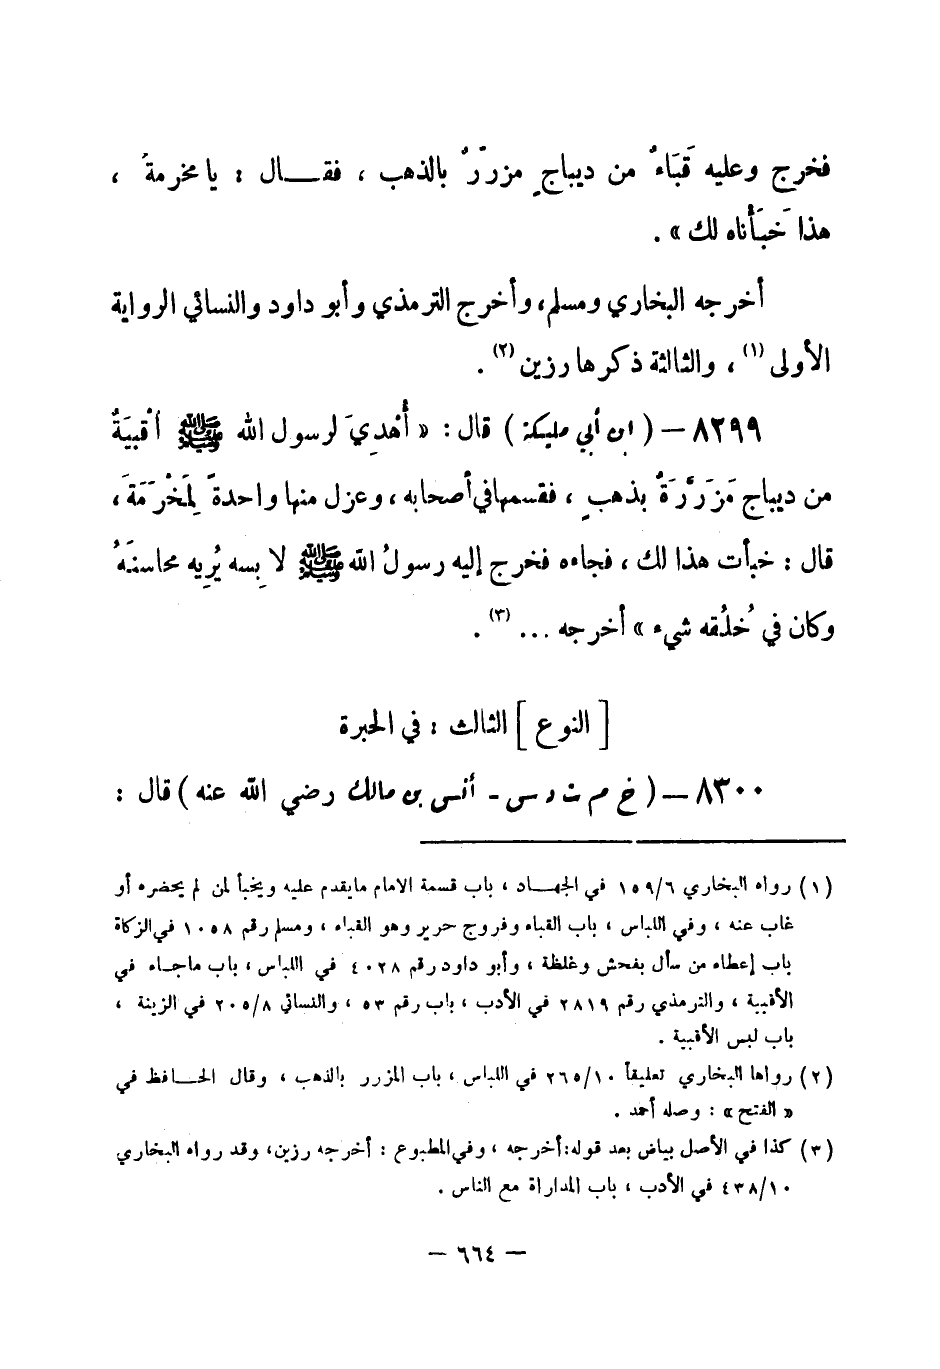 فخرج وعليه قَبَاءٌ من ديباجٍ مزرَّرٌ بالذهب ، فقال : يا مخرمةُ ،
هذا خَبَأْناه لك » .
أخرجه البخاري ومسلم، وأخرج الترمذي وأبو داود والنسائي الرواية
الأولى (١) ، والثالثة ذكرها رزين (٢) .
٨٢٩٩ – ( ابن أبي مليكة ) قال : « أُهْدِيَ لرسول الله ﷺ أقْبِيَةٌ
من ديباج مُزَرَّرَةٌ بذهبٍ ، فقسمها في أصحابه ، وعزل منها واحدةً لِمَخْرَمَةَ ،
قال : خبأت هذا لك ، فجاءه فخرج إليه رسولُ الله ﷺ لابِسه يُرِيه محاسنَهُ
وكان في خُلُقه شيء » أخرجه ... (٣) .
[ النوع ] الثالث : في الحبرة
٨٣٠٠ – ( خ م ت د س - أنس بن مالك رضي الله عنه ) قال :
(١) رواه البخاري ٦/١٥٩ في الجهاد ، باب قسمة الامام ما يقدم عليه ويخبأ لمن لم يحضره أو
غاب عنه ، وفي اللباس ، باب القباء وفروج حرير وهو القباء ، ومسلم رقم ١٠٥٨ في الزكاة
باب إعطاء من سأل بفحش وغلظة ، وأبو داود رقم ٤٠٢٨ في اللباس ، باب ما جاء في
الأقبية ، والترمذي رقم ٢٨١٩ في الأدب ، باب رقم ٥٣ ، والنسائي ٨/٢٠٥ في الزينة ،
باب لبس الأقبية .
(٢) رواها البخاري تعليقاً ١٠/٢٦٥ في اللباس ، باب المزرر بالذهب ، وقال الحافظ في
« الفتح » : وصله أحمد .
(٣) كذا في الأصل بياض بعد قوله : أخرجه ، وفي المطبوع : أخرجه رزين، وقد رواه البخاري
١٠/٤٣٨ في الأدب ، باب المداراة مع الناس .
– ٦٦٤ –